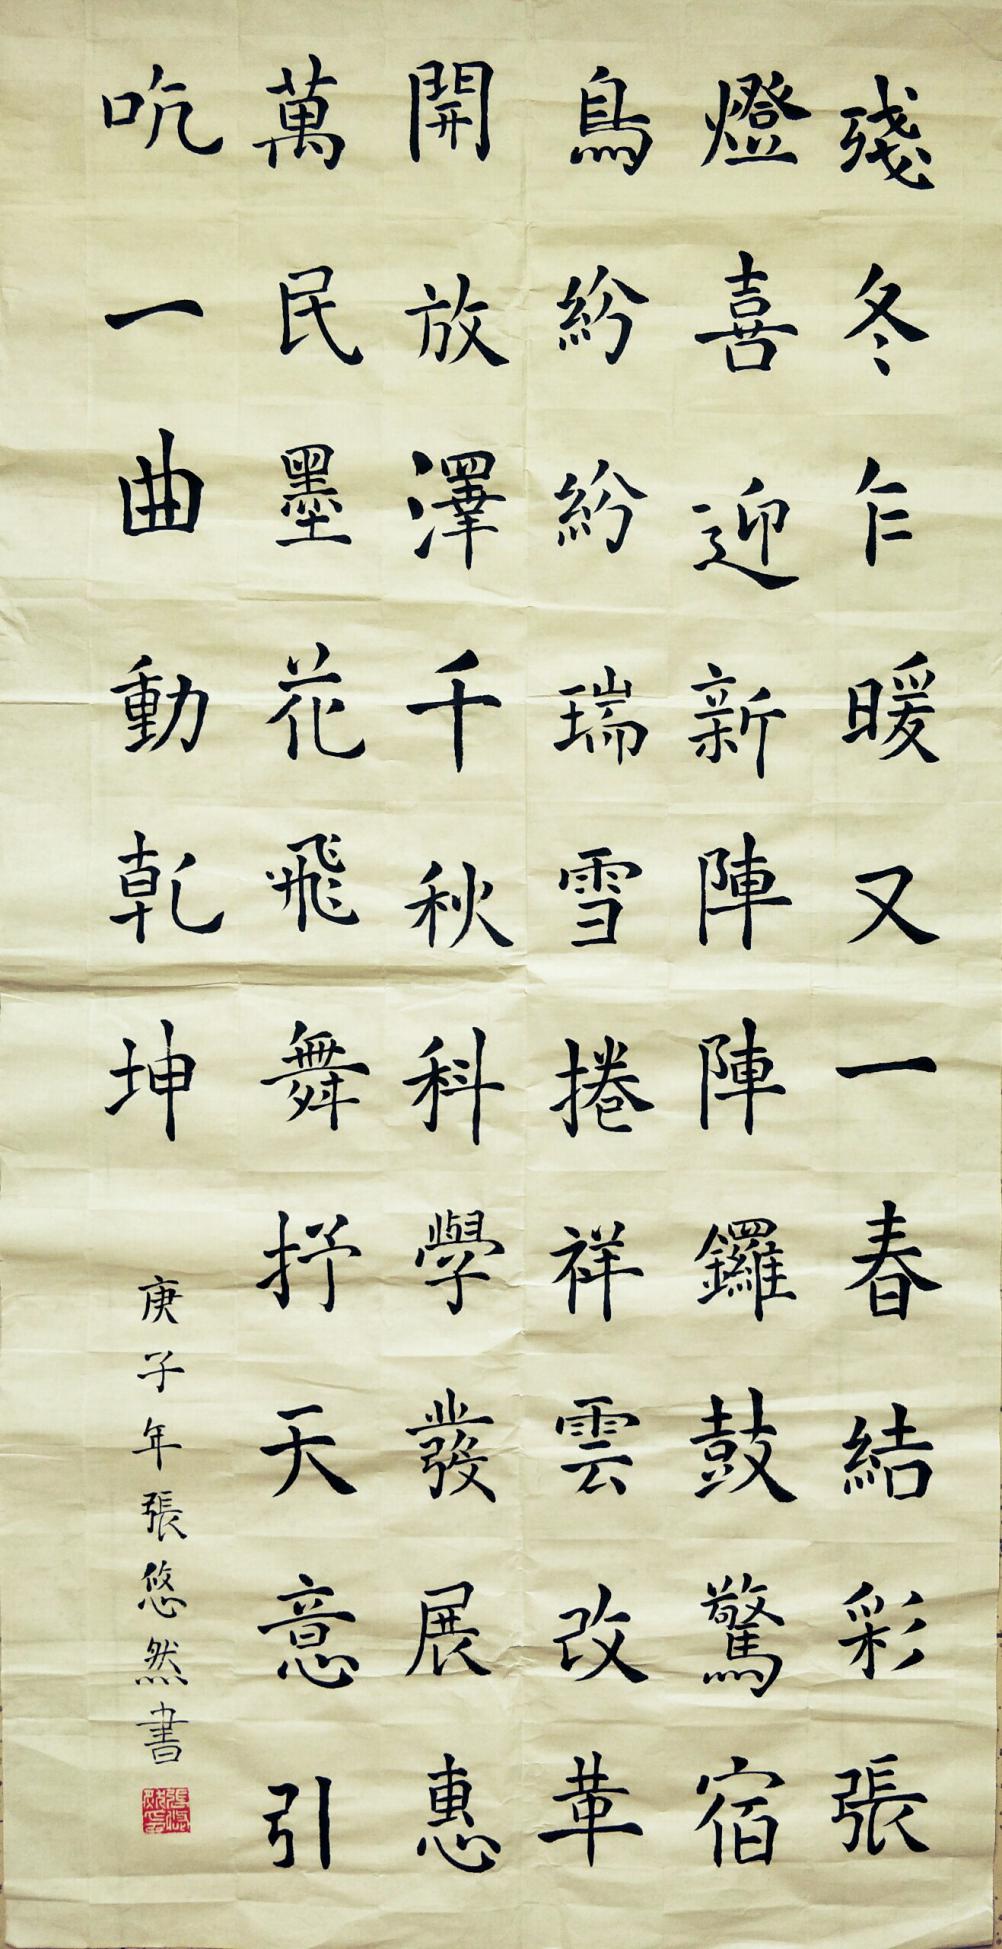 殘冬乍暖又一春結彩張
燈喜迎新陣陣鑼鼓驚宿
鳥紛紛瑞雪捲祥雲改革
開放澤千秋科學發展惠
萬民墨花飛舞抒天意引
吭一曲動乾坤
庚子年張悠然書